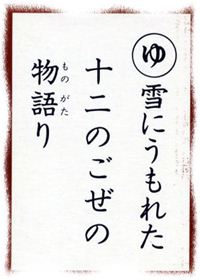 ゆ
雪にうもれた
十二のごぜの
物語り
もの がた